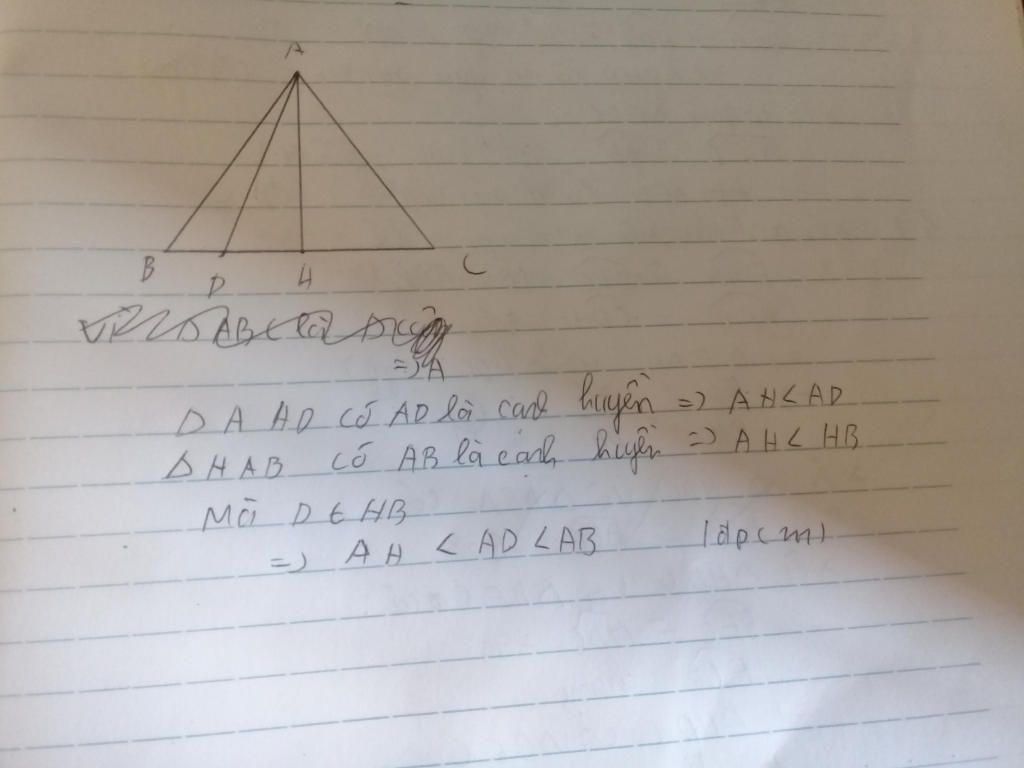 A
B D H C
=> A
Δ AHD có AD là cạnh huyền => AH < AD
Δ HAB có AB là cạnh huyền => AH < HB
Mà D ∈ HB
=> AH < AD < AB (đpcm)